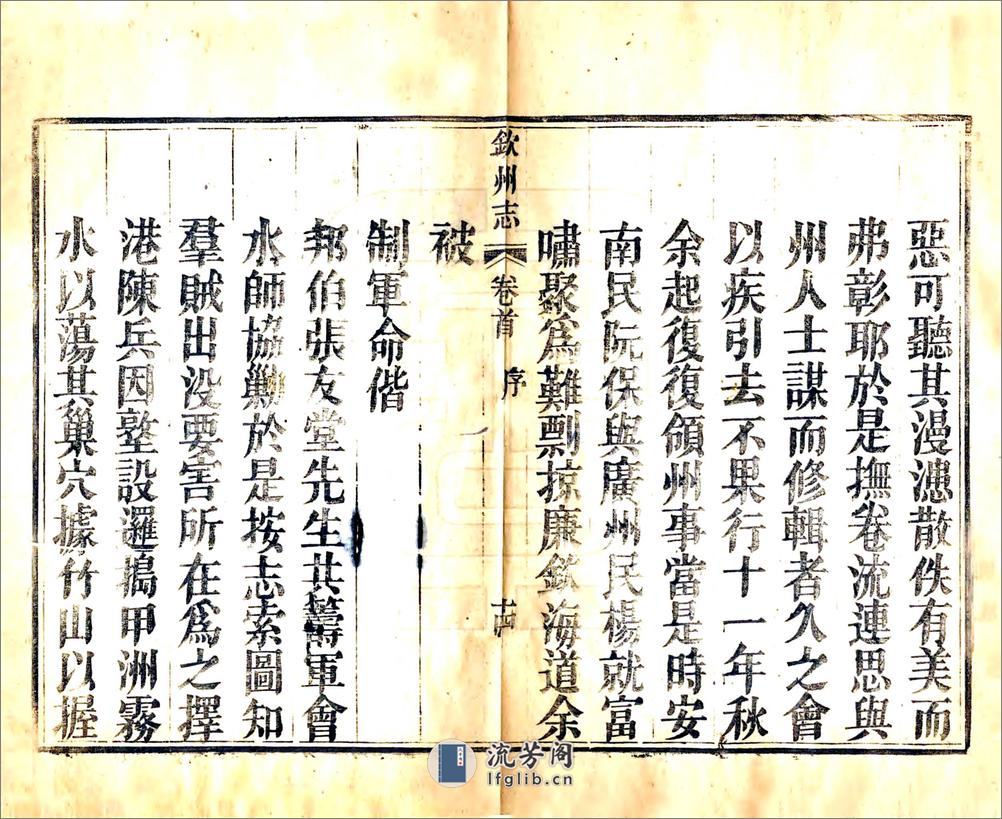 惡可聽其漫漶散佚有美而
弗彰耶於是撫卷流連思與
州人士謀而修輯者久之會
以疾引去不果行十一年秋
余起復復領州事當是時安
南民阮保與廣州民楊就富
嘯聚為難剽掠廉欽海道余
欽州志
卷首
序
十四
被
制軍命偕
邦伯張友堂先生共籌軍會
水師協勦於是按志索圖知
羣賊出没要害所在為之擇
港陳兵因塹設邏搗甲洲霧
水以蕩其巢穴據竹山以握
流芳阁
lfglib.cn